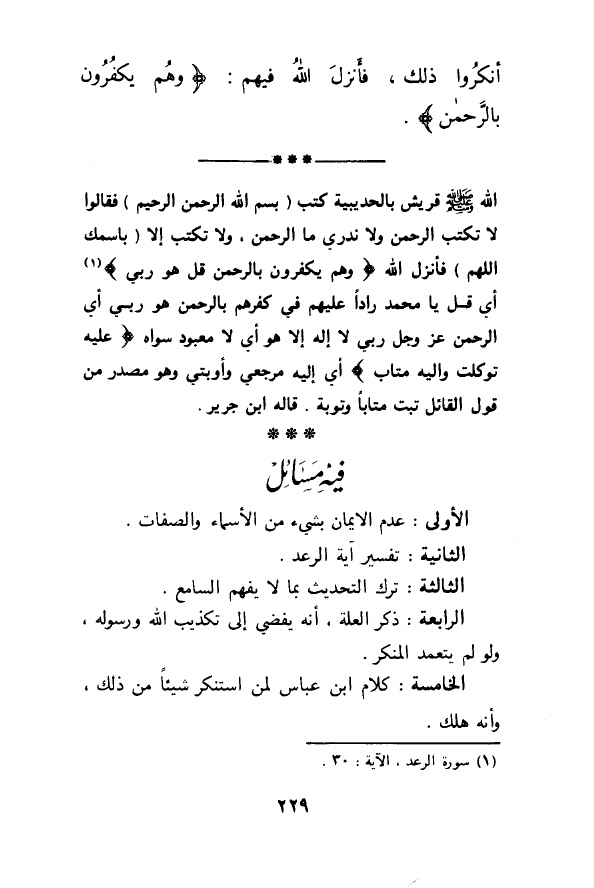 أنكرُوا ذلك ، فأَنزلَ اللهُ فيهم : ﴿ وهُم يكفُرُون
بالرَّحمٰن ﴾ .
***
الله ﷺ قريش بالحديبية كتب ( بسم الله الرحمن الرحيم ) فقالوا
لا تكتب الرحمن ولا ندري ما الرحمن ، ولا تكتب إلا ( باسمك
اللهم ) فأنزل الله ﴿ وهم يكفرون بالرحمن قل هو ربي ﴾(١)
أي قـل يا محمد راداً عليهم في كفرهم بالرحمن هو ربـي أي
الرحمن عز وجل ربي لا إله إلا هو أي لا معبود سواه ﴿ عليه
توكلت واليه متاب ﴾ أي إليه مرجعي وأوبتي وهو مصدر من
قول القائل تبت متاباً وتوبة . قاله ابن جرير .
***
فيه مسائل
الأولى : عدم الايمان بشيء من الأسماء والصفات .
الثانية : تفسير آية الرعد .
الثالثة : ترك التحديث بما لا يفهم السامع .
الرابعة : ذكر العلة ، أنه يفضي إلى تكذيب الله ورسوله ،
ولو لم يتعمد المنكر .
الخامسة : كلام ابن عباس لمن استنكر شيئاً من ذلك ،
وأنه هلك .
(١) سورة الرعد ، الآية : ٣٠ .
٢٢٩